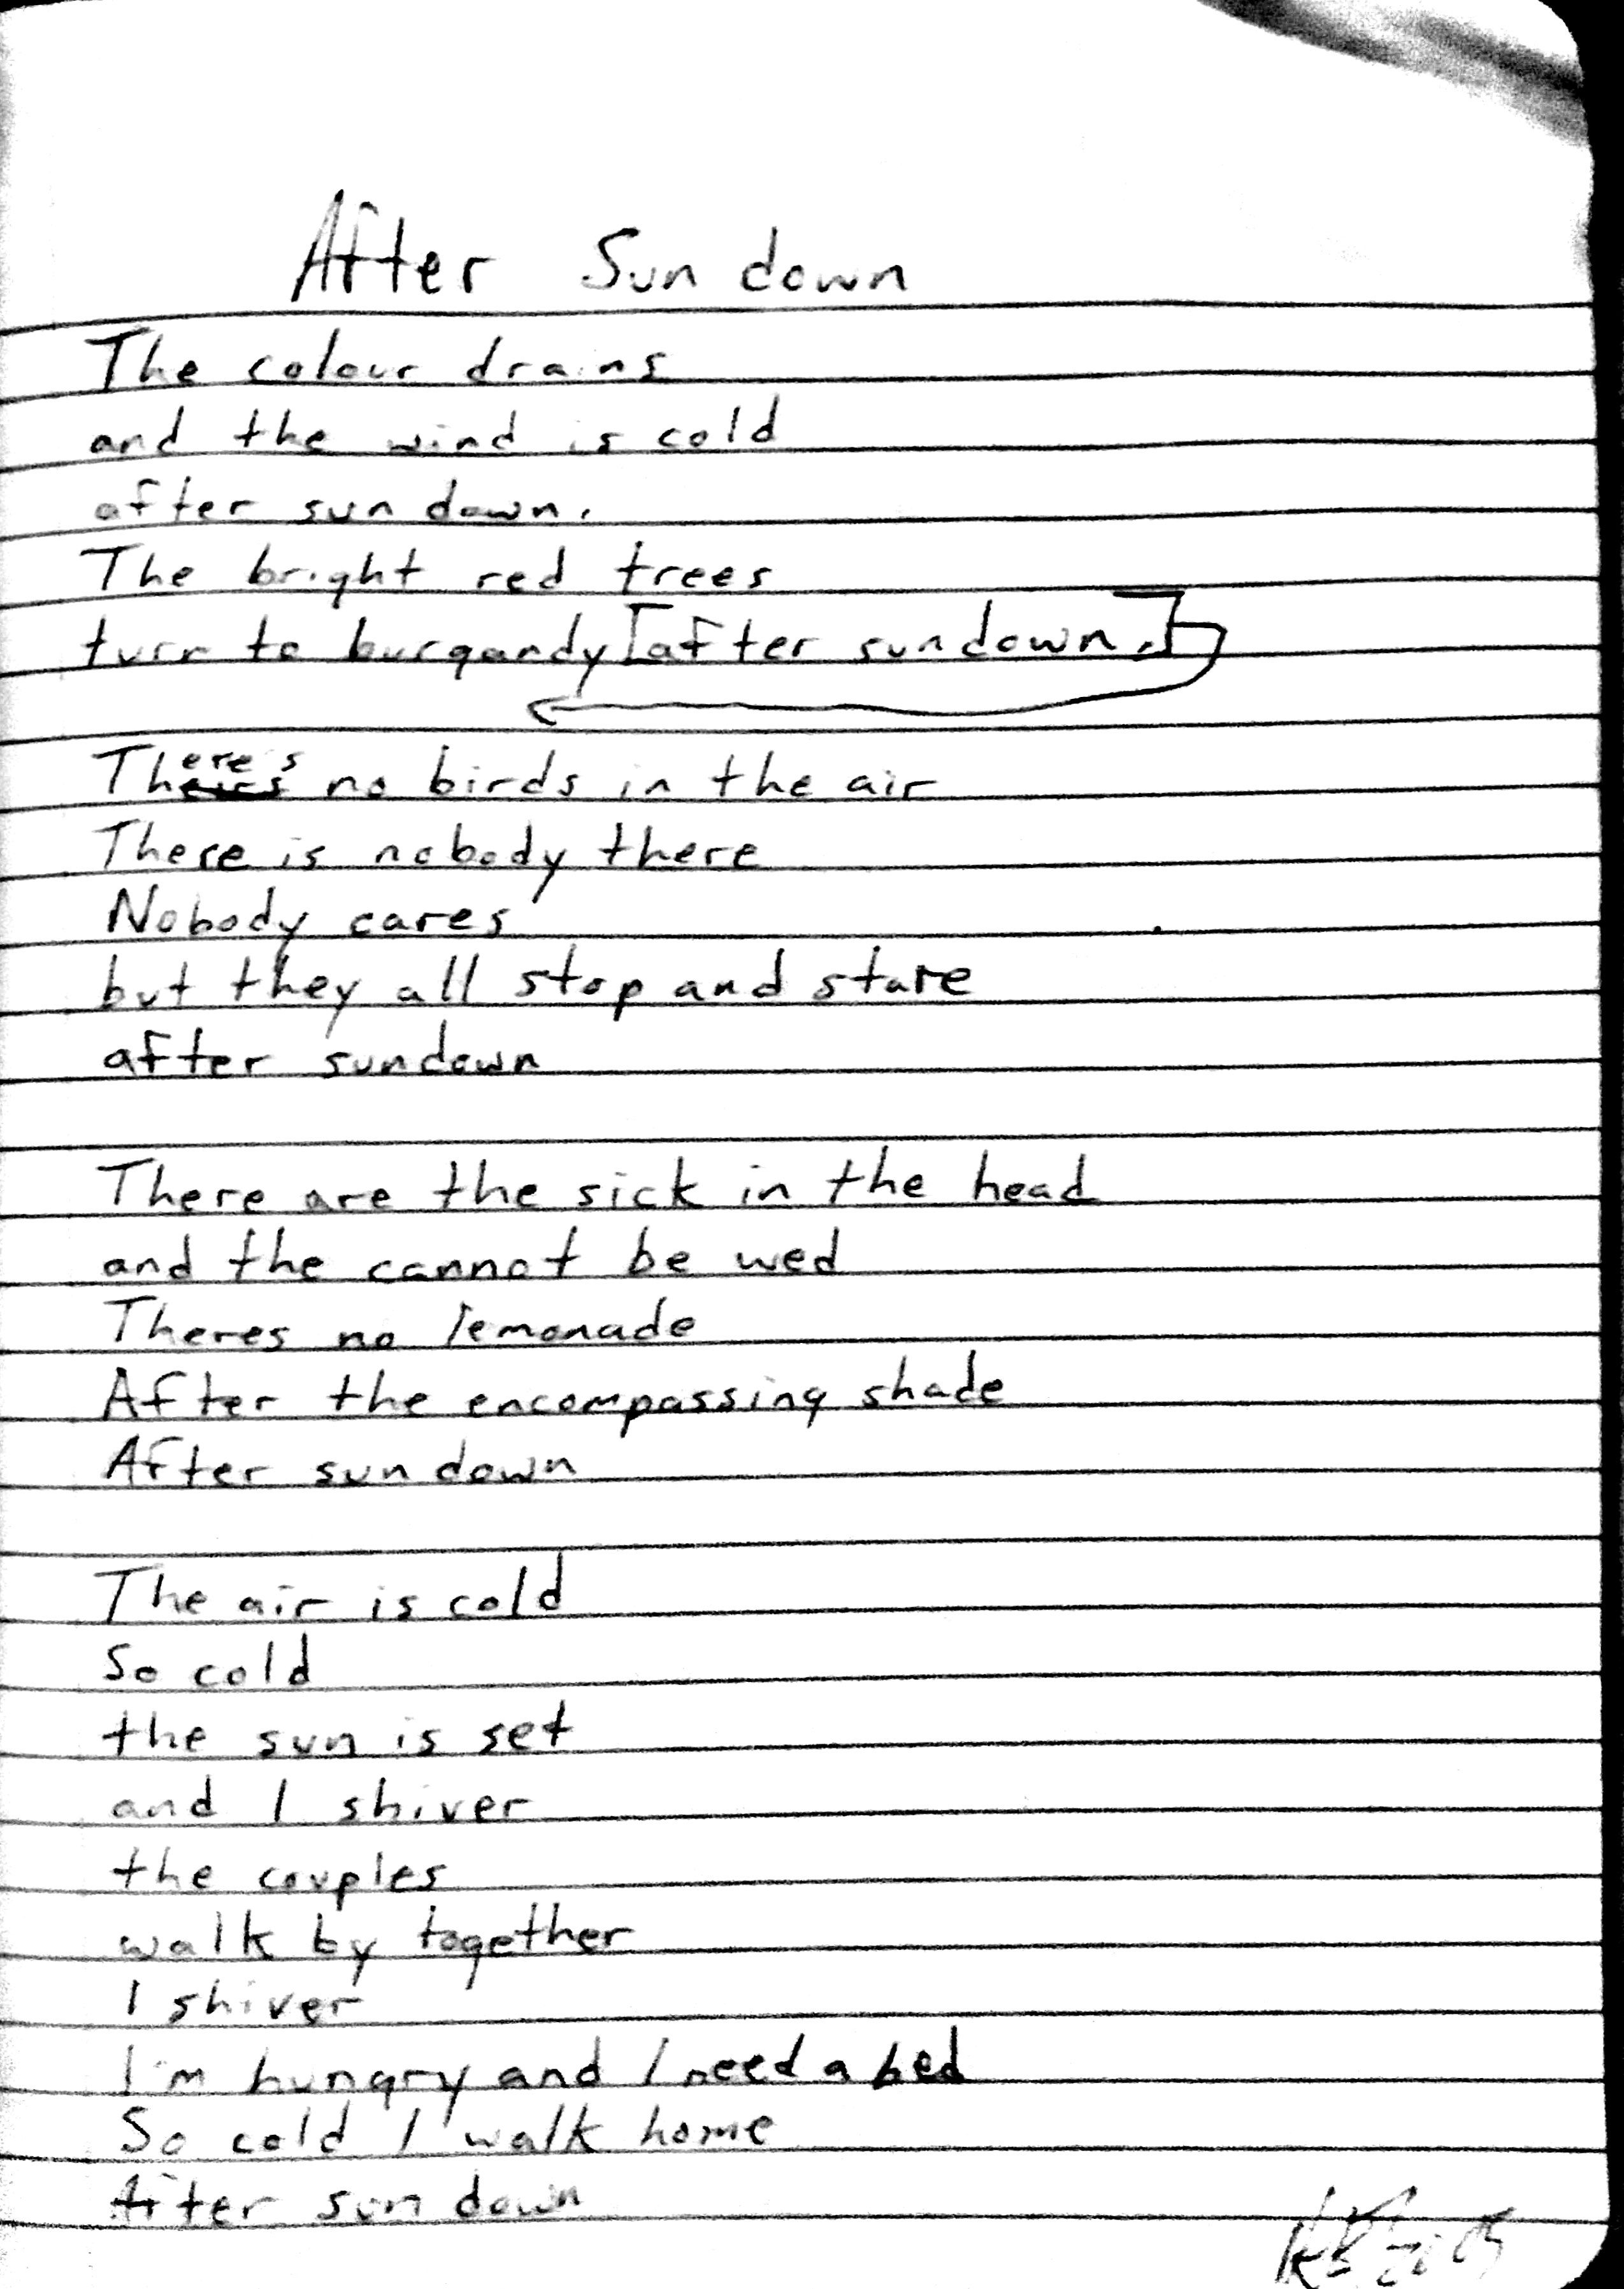 After Sun down
The colour drains
and the wind is cold
after sun down.
The bright red trees
turn to burgandy [after sundown.]
There's no birds in the air
There is nobody there
Nobody cares
but they all stop and stare
after sundown
There are the sick in the head
and the cannot be wed
Theres no lemonade
After the encompassing shade
After sun down
The air is cold
So cold
the sun is set
and I shiver
the couples
walk by together
I shiver
I'm hungry and I need a bed
So cold I walk home
After sun down